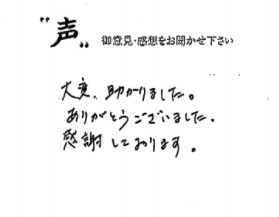 "声" 御意見・感想をお聞かせ下さい
大変、助かりました。
ありがとうございました.
感謝しております。